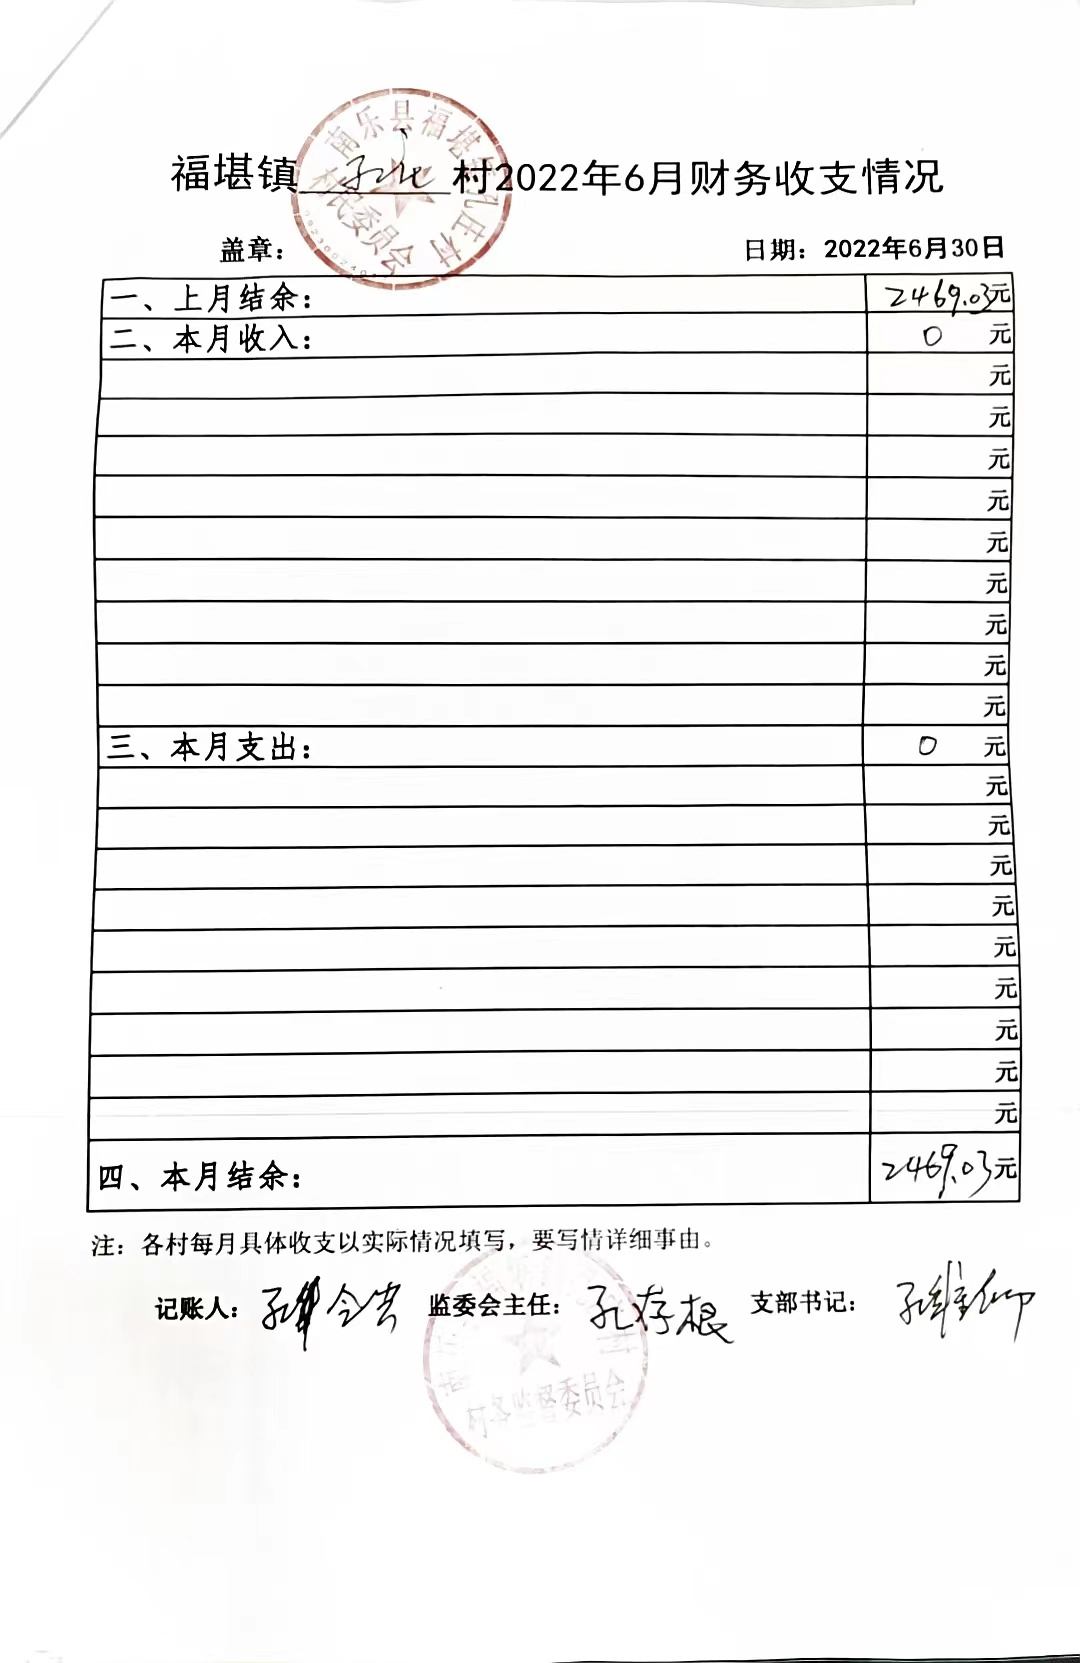 福堪镇孔庄村2022年6月财务收支情况
南乐县福堪镇孔庄村
村民委员会
盖章： 日期：2022年6月30日
一、上月结余： 2469.03元
二、本月收入： 0 元
元
元
元
元
元
元
元
元
元
三、本月支出： 0 元
元
元
元
元
元
元
元
元
元
四、本月结余： 2469.03元
注：各村每月具体收支以实际情况填写，要写情详细事由。
记账人： 监委会主任：孔存根 支部书记：孔维仰
村务监督委员会